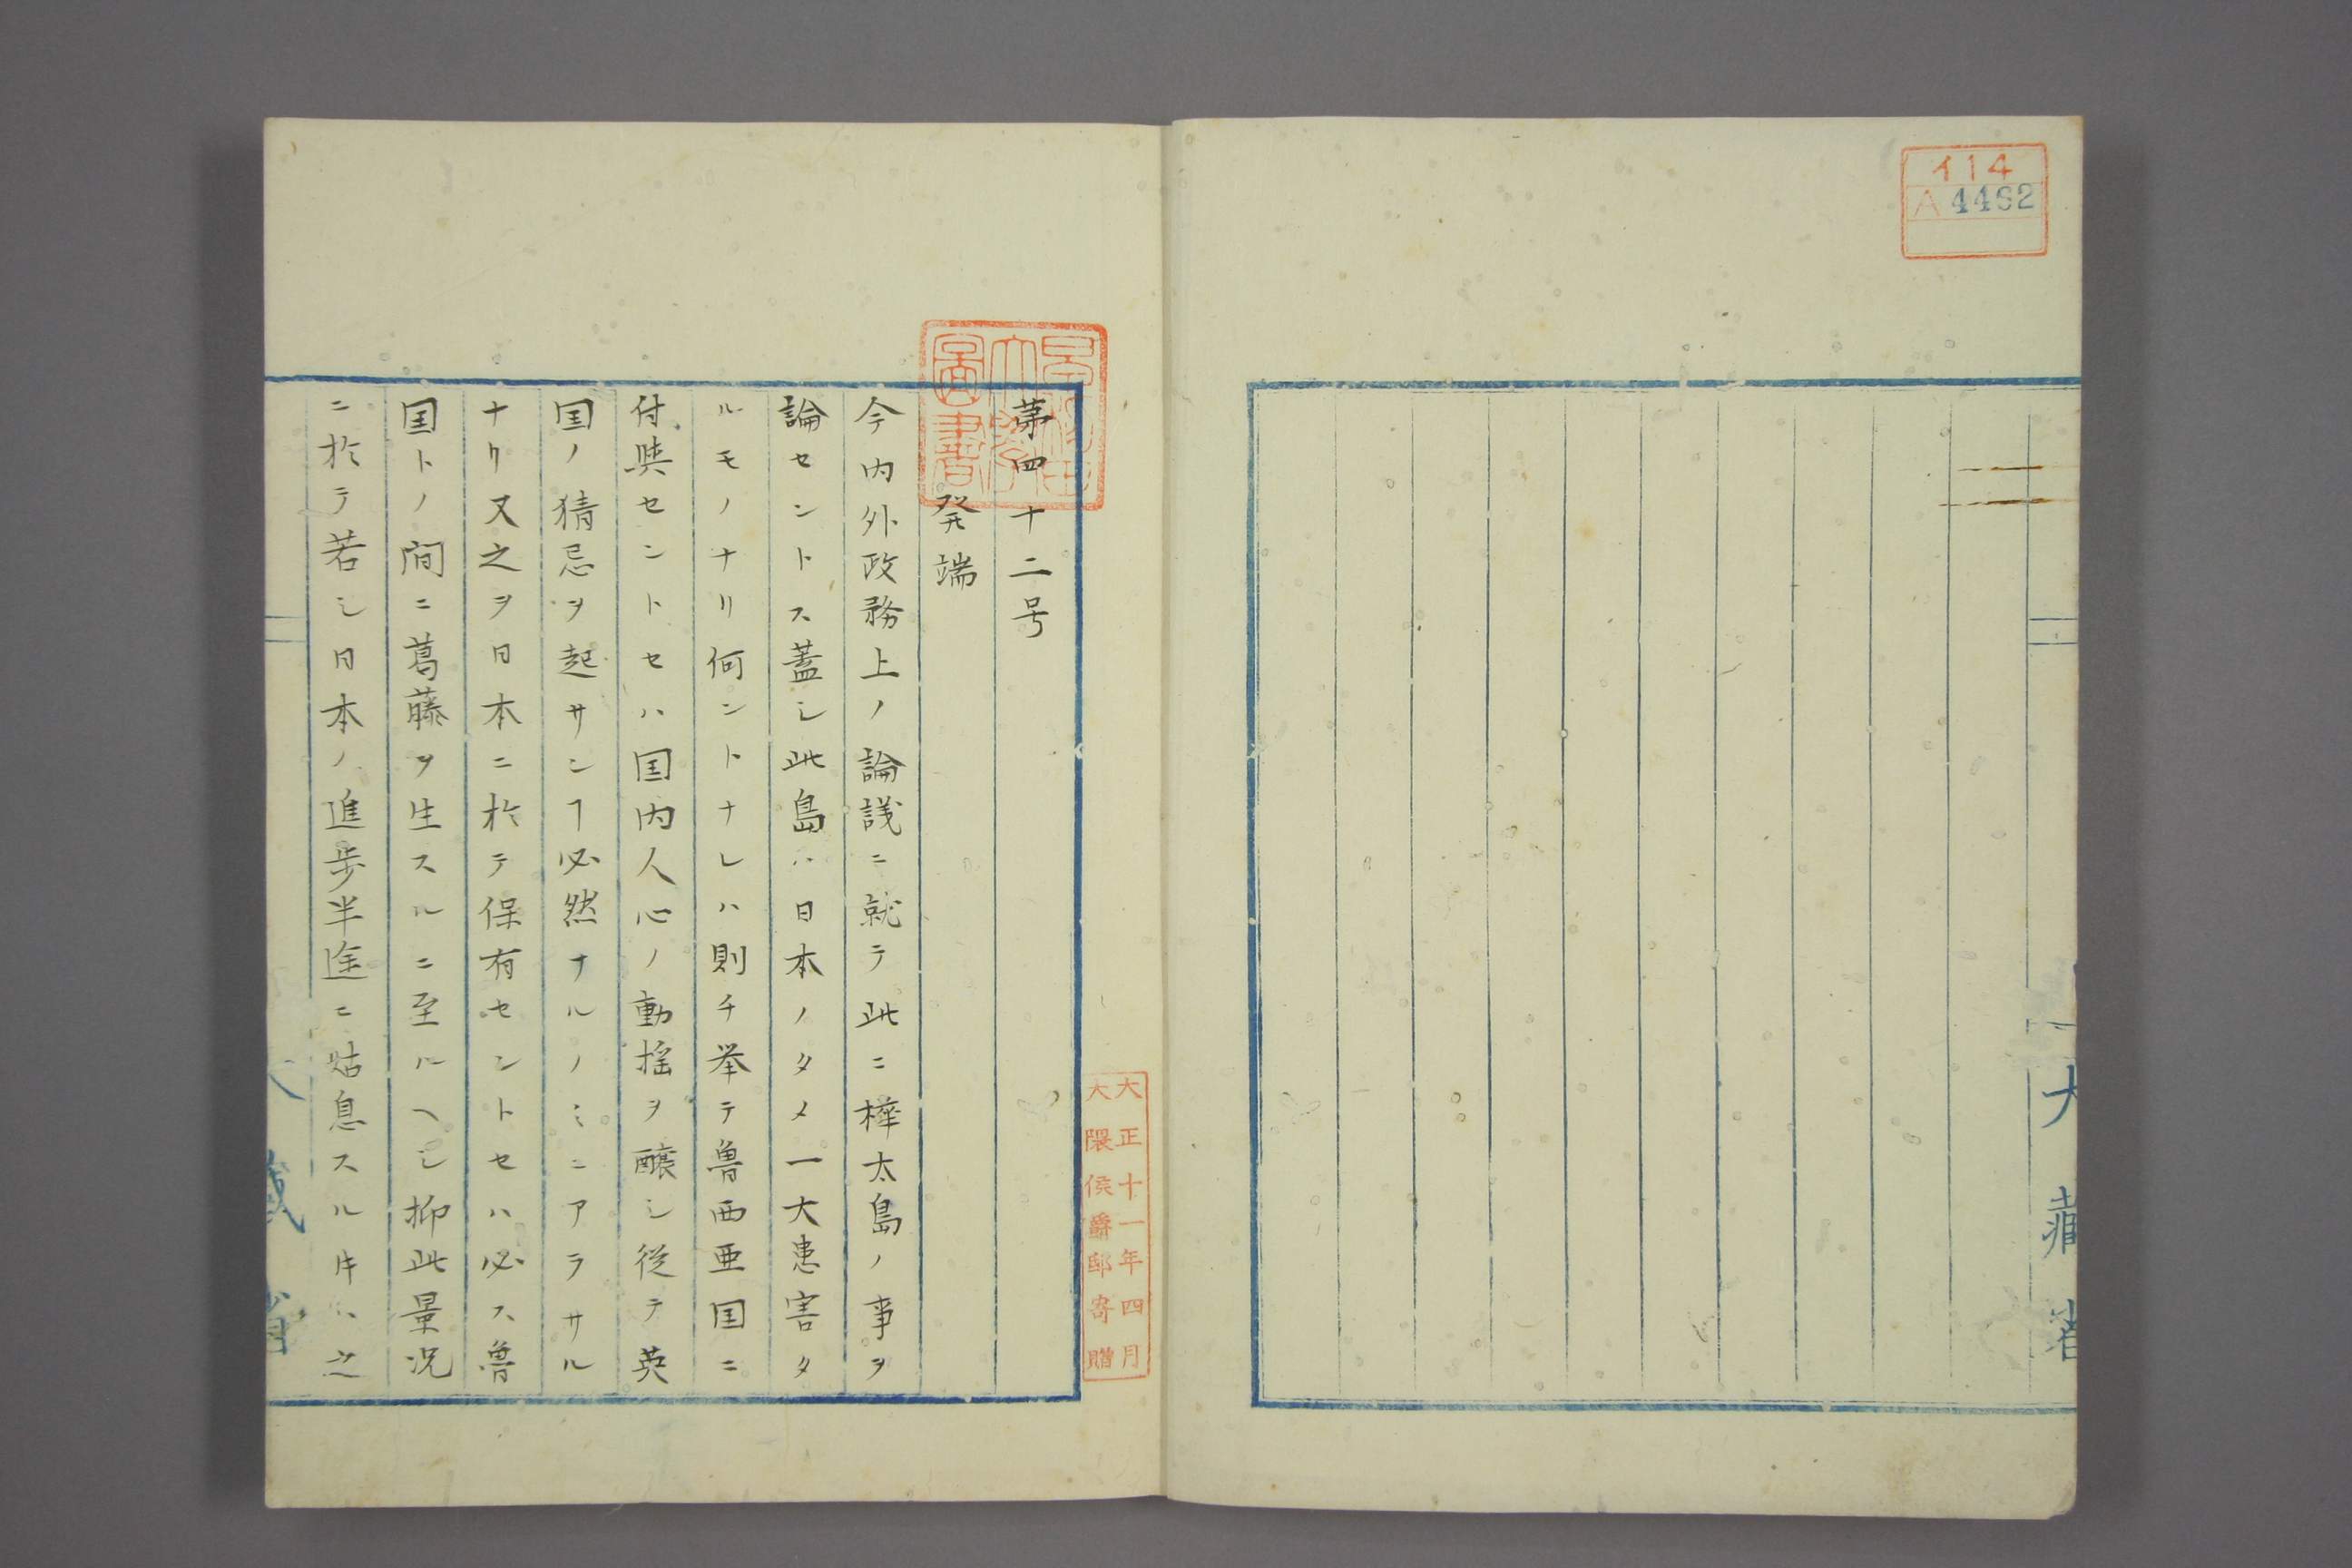 イ14
A 4462
大藏省
第四十二号
発端
今内外政務上ノ論議ニ就テ此ニ樺太島ノ事ヲ
論セントス蓋シ此島ハ日本ノタメ一大患害タ
ルモノナリ何ントナレハ則チ挙テ魯西亜国ニ
付與セントセハ国内人心ノ動揺ヲ醸シ従テ英
国ノ猜忌ヲ起サンヿ必然ナルノミニアラサル
ナリ又之ヲ日本ニ於テ保有セントセハ必ス魯
国トノ間ニ葛藤ヲ生スルニ至ルヘシ抑此景況
ニ於テ若シ日本ノ進歩半途ニ姑息スル牛ハ之
早稲田大学図書
大正十一年四月
大隈侯爵邸寄贈
大藏省